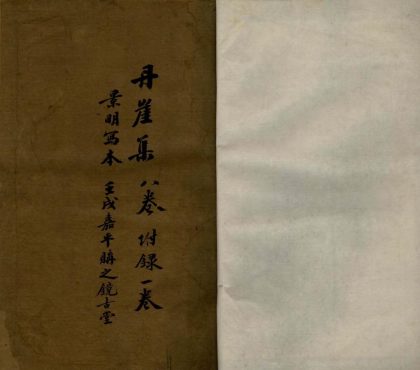 丹崖集八卷附錄一卷
景明寫本 壬戌嘉平購之鏡古堂